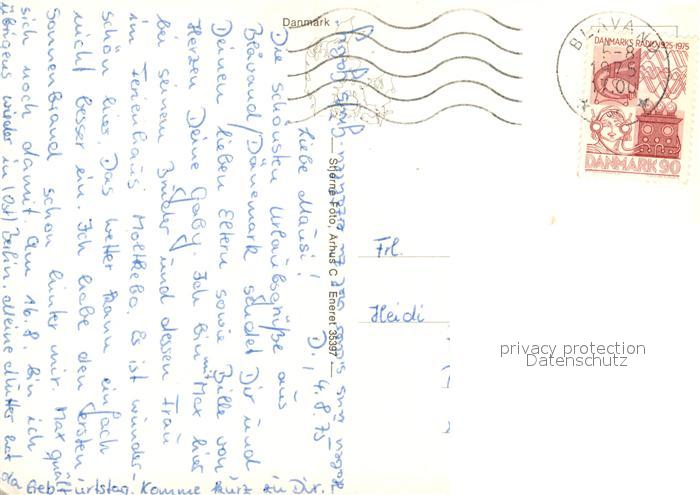 Danmark
BLÅVAND
5-8
1975
17.00
DANMARKS RADIO 1925-1975
DANMARK 90
Stjerne Foto, Århus C - Eneret 35397
D., 4.8.75
Liebe Mausi!
Die schönsten Urlaubsgrüße aus
Blåvand/Dänemark sendet Dir und
Deinen lieben Eltern sowie Bille von
Herzen Deine Gaby. Ich bin mit Max hier
bei seinem Bruder und dessen Frau
im Ferienhaus Moltkebo. Es ist wunder-
schön hier. Das Wetter kann einfach
nicht besser sein. Ich habe den ersten
Sonnenbrand schon hinter mir. Max quält
sich noch damit. Am 16.8. bin ich
übrigens wieder in (Ost) Berlin. Meine Mutter hat
da Geburtstag. Komme kurz zu Dir.
Frl.
Heidi
privacy protection
Datenschutz